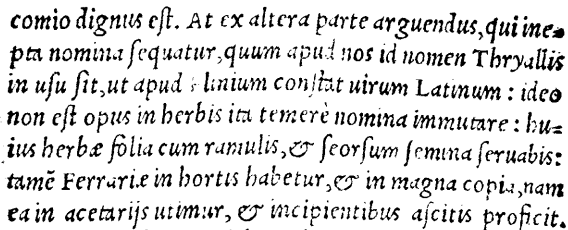 comio dignus eſt. At ex altera parte arguendus, qui ine-
pta nomina ſequatur, quum apud nos id nomen Thryallis
in uſu ſit, ut apud Plinium conſtat uirum Latinum : ideo
non eſt opus in herbis ita temerè nomina immutare : hu-
ius herbæ folia cum ramulis, & ſeorſum ſemina ſeruabis:
tamẽ Ferrariæ in hortis habetur, & in magna copia, nam
ea in acetarijs utimur, & incipientibus aſcitis proficit.